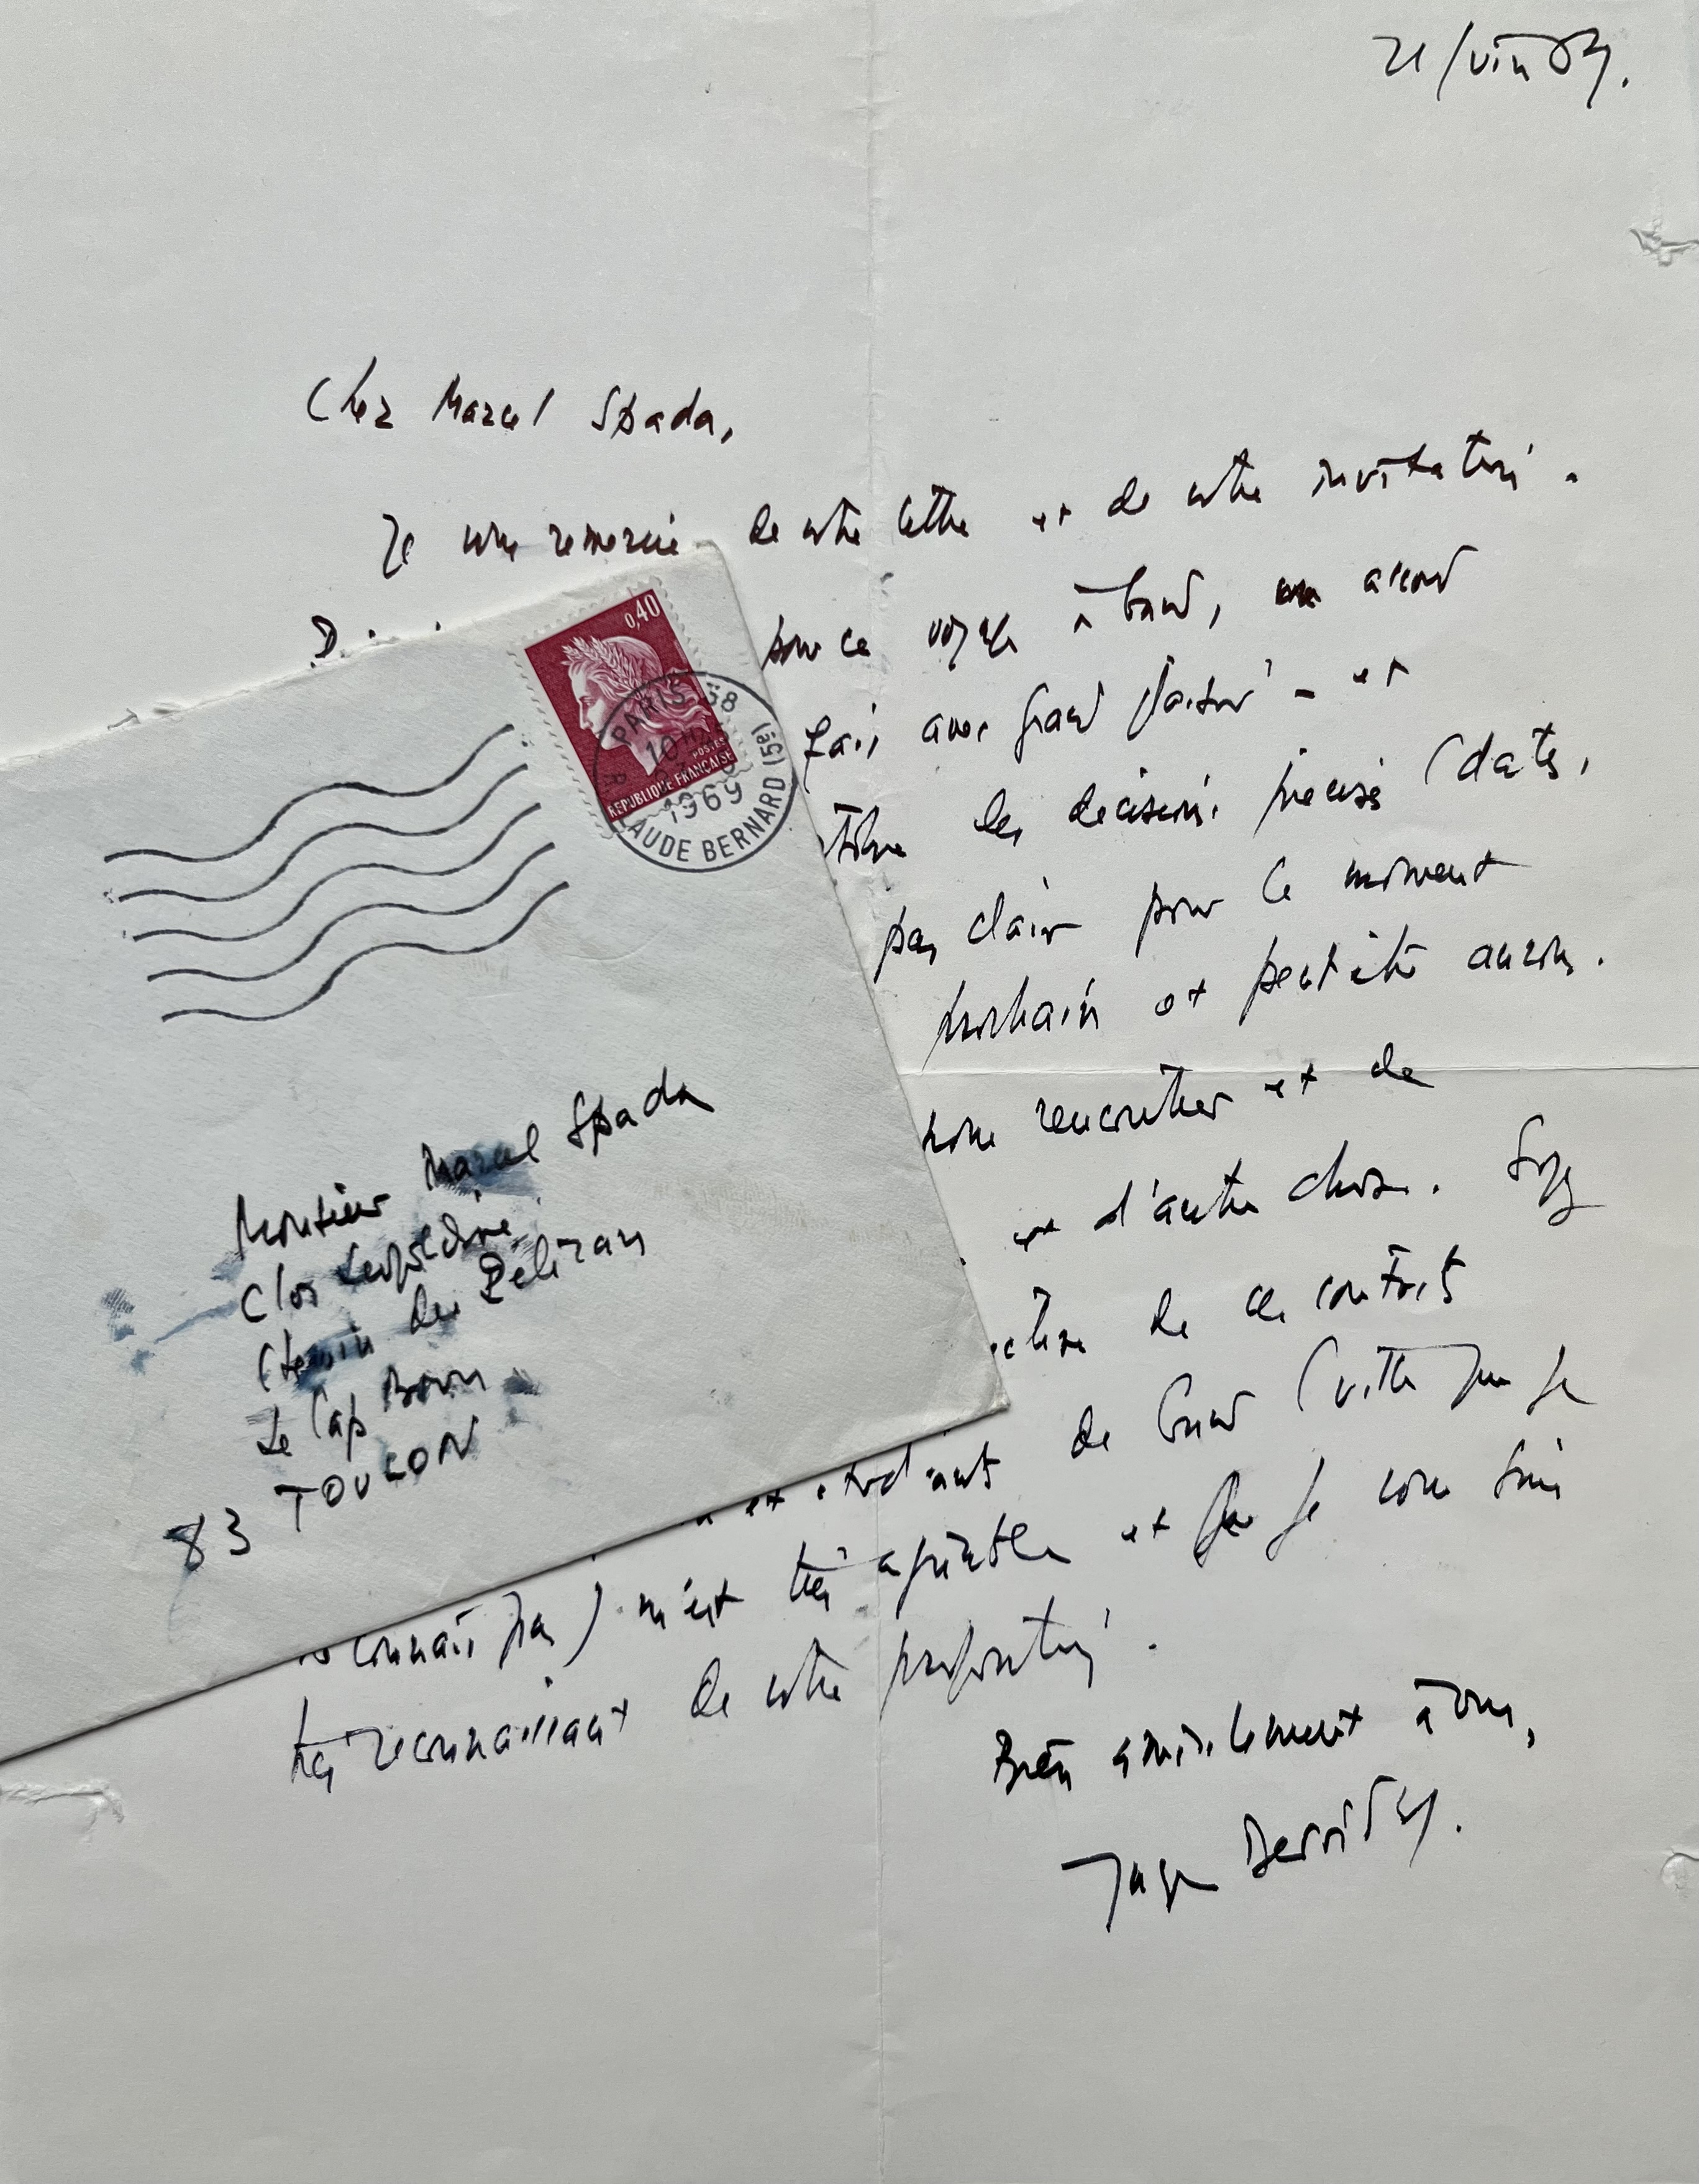 21/VIII 69.
Cher Marcel Spada,
Je vous remercie de votre lettre et de votre invitation.
pour ce voyage à Brno, mon accord
fais avec grand plaisir - et
les décisions précises (dates,
pas clair pour le moment
prochain et peut-être aurons.
nous rencontrer et de
et d'autre chose. Soyez
de ce contact
et étudiants de Brno (ville que je
connais pas) m'est très agréable et que je vous suis
très reconnaissant de votre proposition.
Bien amicalement à vous,
Jacques Derrida.
0,40
POSTES
REPUBLIQUE FRANÇAISE
PARIS 38
10H
1969
AUDE BERNARD (5e)
Monsieur Marcel Spada
Clos
Chemin du
Le Cap Brun
83 TOULON